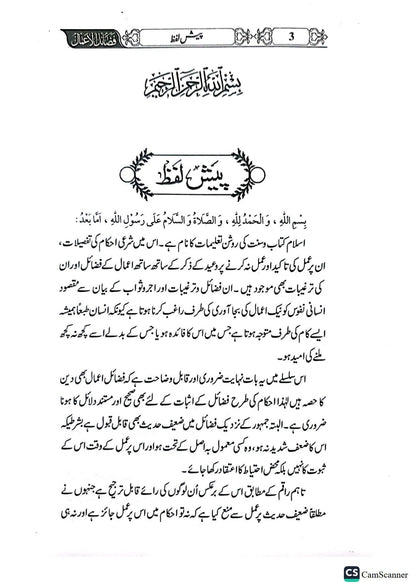 فضائل الاعمال پیش لفظ 3
بسم اللہ الرحمن الرحیم
پیش لفظ
بِسْمِ اللّٰهِ ، وَالْحَمْدُ لِلّٰهِ ، وَالصَّلَاةُ وَالسَّلَامُ عَلٰی رَسُوْلِ اللّٰهِ ، اَمَّا بَعْدُ :
اسلام کتاب و سنت کی روشن تعلیمات کا نام ہے۔ اس میں شرعی احکام کی تفصیلات،
ان پر عمل کی تاکید اور عمل نہ کرنے پر وعید کے ذکر کے ساتھ ساتھ اعمال کے فضائل اور ان
کی ترغیبات بھی موجود ہیں۔ ان فضائل و ترغیبات اور اجر و ثواب کے بیان سے مقصود
انسانی نفوس کو نیک اعمال کی بجا آوری کی طرف راغب کرنا ہوتا ہے کیونکہ انسان طبعاً ہمیشہ
ایسے کام کی طرف متوجہ ہوتا ہے جس میں اس کا فائدہ ہو یا جس کے بدلے اسے کچھ نہ کچھ
ملنے کی امید ہو۔
اس سلسلے میں یہ بات نہایت ضروری اور قابل وضاحت ہے کہ فضائل اعمال بھی دین
کا حصہ ہیں لہٰذا احکام کی طرح فضائل کے اثبات کے لئے بھی صحیح اور مستند دلائل کا ہونا
ضروری ہے۔ البتہ جمہور کے نزدیک فضائل میں ضعیف حدیث بھی قابل قبول ہے بشرطیکہ
اس کا ضعف شدید نہ ہو، وہ کسی معمول بہ اصل کے تحت ہو اور اس پر عمل کے وقت اس کے
ثبوت کا نہیں بلکہ محض احتیاط کا اعتقاد رکھا جائے۔
تاہم راقم کے مطابق اس کے برعکس اُن لوگوں کی رائے قابل ترجیح ہے جنہوں نے
مطلقاً ضعیف حدیث پر عمل سے منع کیا ہے کہ نہ تو احکام میں اس پر عمل جائز ہے اور نہ ہی
CS CamScanner